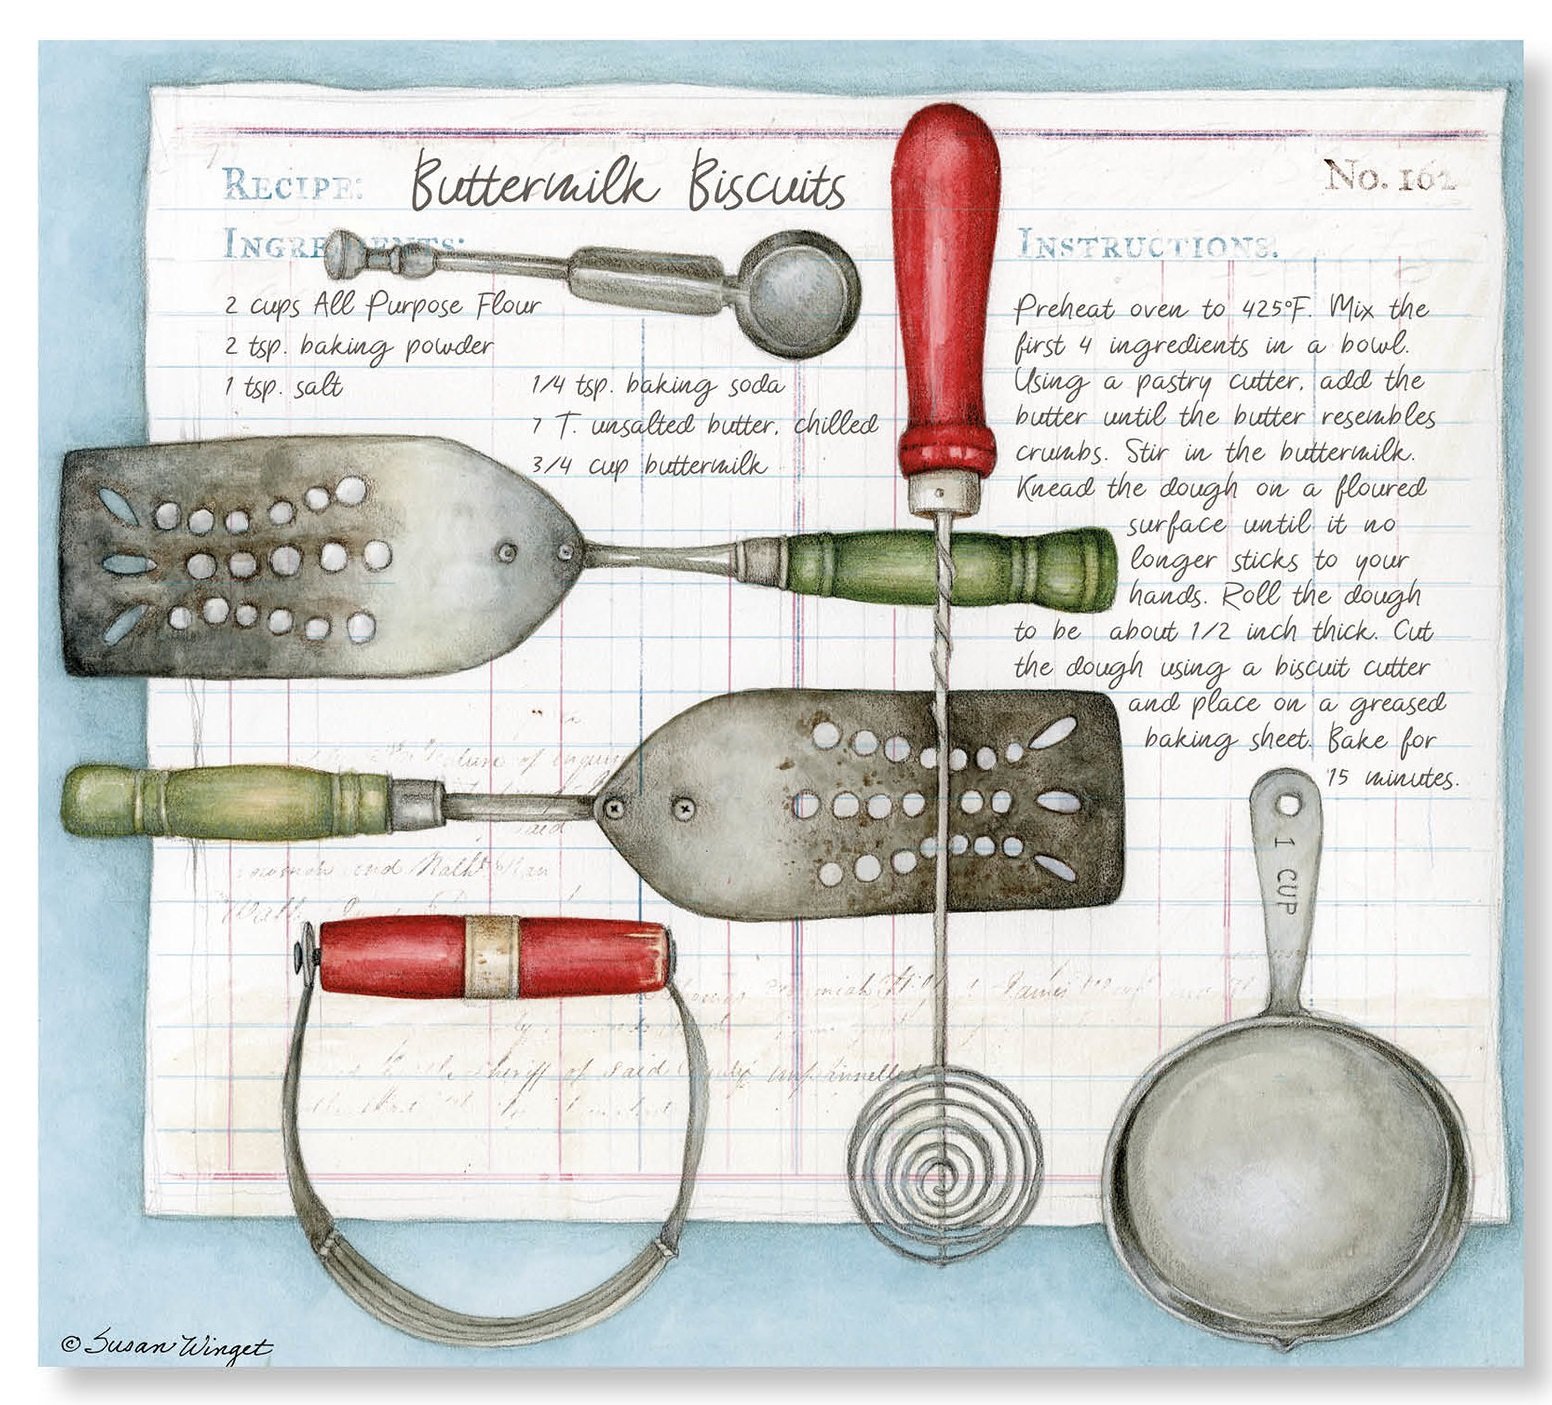 RECIPE: Buttermilk Biscuits
No. 162
INGREDIENTS:
2 cups All Purpose Flour
2 tsp. baking powder
1 tsp. salt
1/4 tsp. baking soda
7 T. unsalted butter, chilled
3/4 cup buttermilk
INSTRUCTIONS:
Preheat oven to 425°F. Mix the
first 4 ingredients in a bowl.
Using a pastry cutter, add the
butter until the butter resembles
crumbs. Stir in the buttermilk.
Knead the dough on a floured
surface until it no
longer sticks to your
hands. Roll the dough
to be about 1/2 inch thick. Cut
the dough using a biscuit cutter
and place on a greased
baking sheet. Bake for
15 minutes.
1 CUP
Sheriff of said County
© Susan Winget